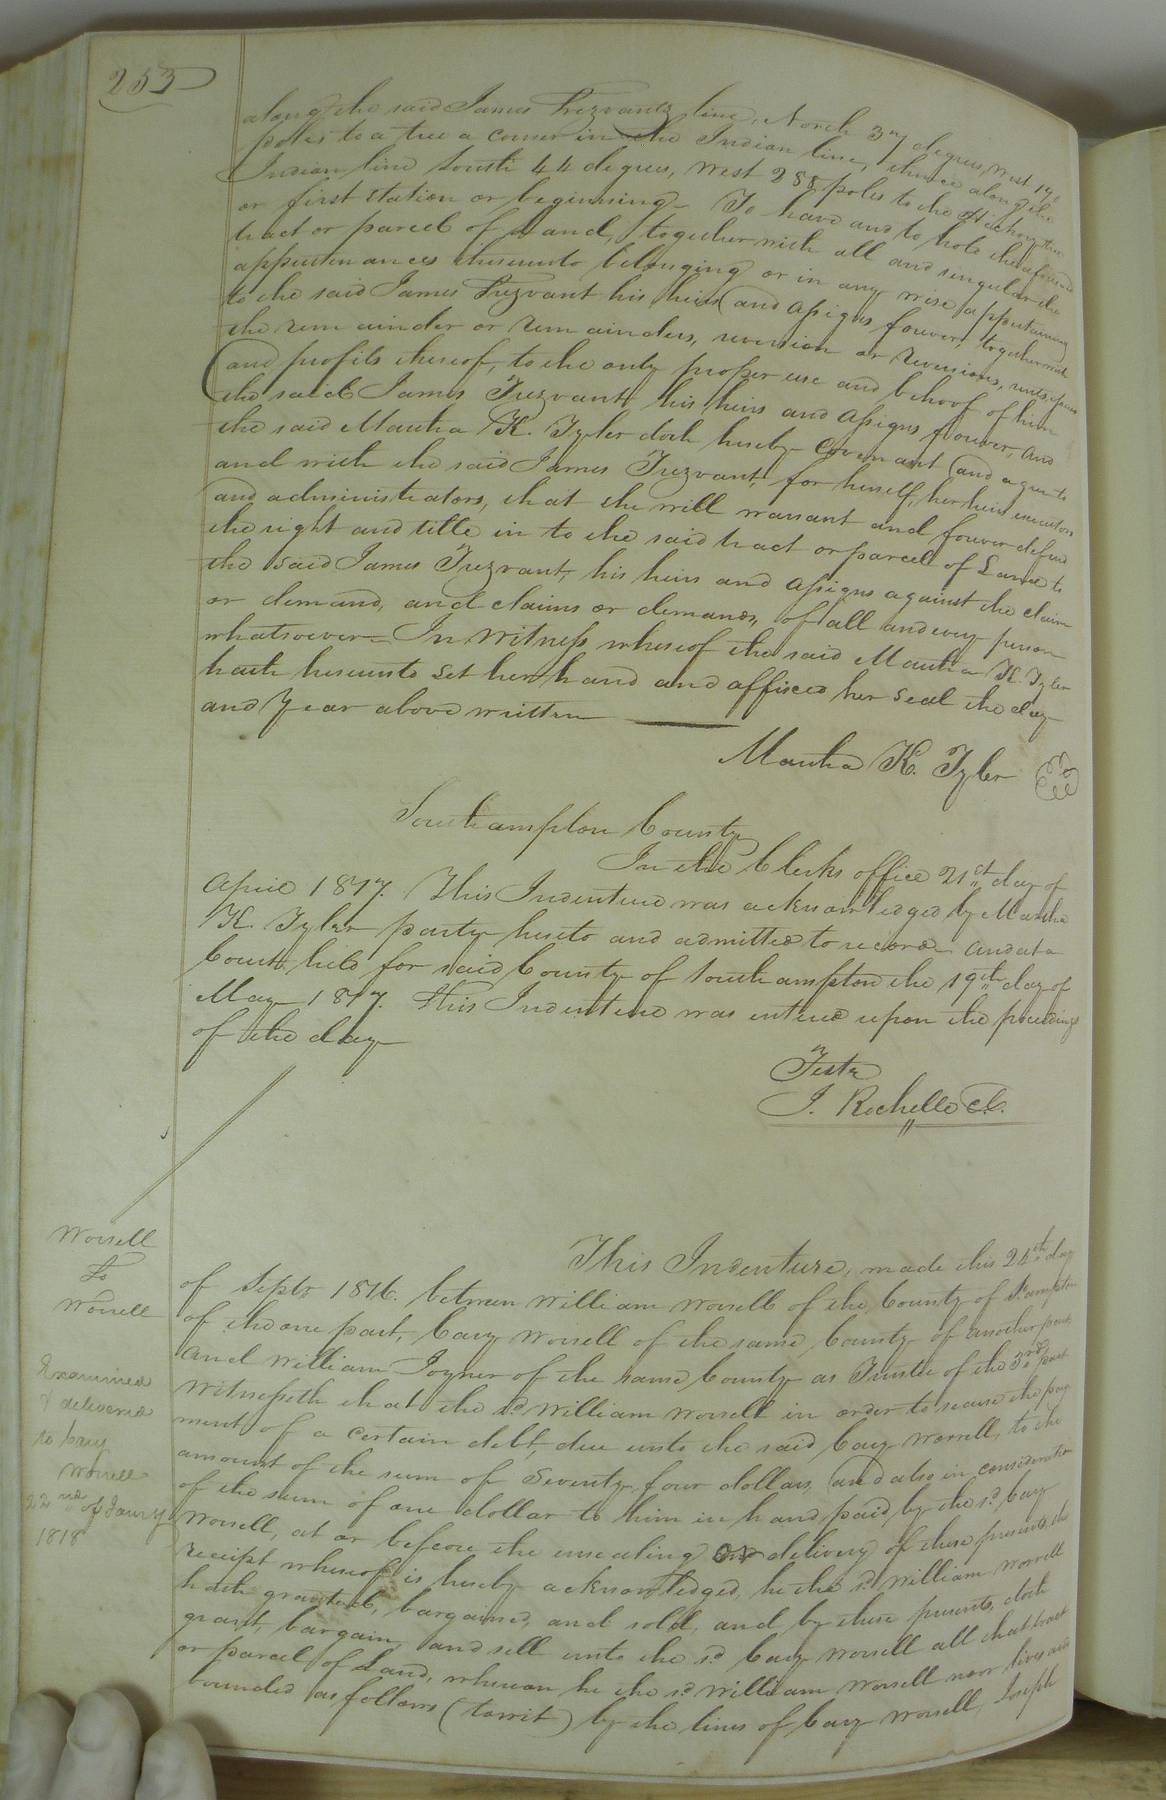 253
along the said James Trezvants line, North 37 degrees, West 190
poles to a tree a corner in the Indian line, thence along the
Indian line South 44 degrees, West 288 poles to the Hickory tree
or first station or beginning. To have and to hold the aforesaid
tract or parcel of Land, together with all and singular the
appurtenances thereunto belonging or in any wise appertaining
to the said James Trezvant his heirs and assigns forever, together with
the remainder or remainders, reversion or reversions, rents, issues
and profits thereof, to the only proper use and behoof of him
the said James Trezvant, his heirs and assigns forever, and
the said Martha K. Tyler doth hereby Covenant and agree to
and with the said James Trezvant, for herself, her heirs executors
and administrators, that she will warrant and forever defend
the right and title in to the said tract or parcel of Land to
the said James Trezvant, his heirs and assigns against the claim
or demand, and claims or demands, of all and every person
whatsoever= In Witness whereof the said Martha K. Tyler
hath hereunto set her hand and affixed her seal the day
and Year above written
Martha K. Tyler
Southampton County
In the Clerks office 21st day of
April 1817. This Indenture was acknowledged by Martha
K. Tyler party hereto and admitted to record. And at a
Court, held for said County of Southampton the 19th day of
May 1817. This Indenture was entered upon the proceedings
of the day
Teste
J. Rochelle Cl.
Worrell
To
Worrell
Examined
& delivered
to Cary
Worrell
22nd of Jan'y
1818
This Indenture, made this 24th day
of Septr 1816. between William Worrell of the County of So.ampton
of the one part, Cary Worrell of the same County of another part
and William Joyner of the same County as Trustee of the 3rd part
Witnesseth that the sd William Worrell in order to secure the pay
ment of a certain debt, due unto the said Cary Worrell, to the
amount of the sum of Seventy four dollars, and also in consideration
of the sum of one dollar to him in hand paid, by the sd Cary
Worrell, at or before the ensealing or delivery of these presents, the
receipt whereof is hereby acknowledged, he the sd William Worrell
hath granted, bargained, and sold, and by these presents, doth
grant, bargain, and sell unto the sd Cary Worrell all that tract
or parcel of Land, whereon he the sd William Worrell now lives and
bounded as follows (towit) by the lines of Cary Worrell, Joseph